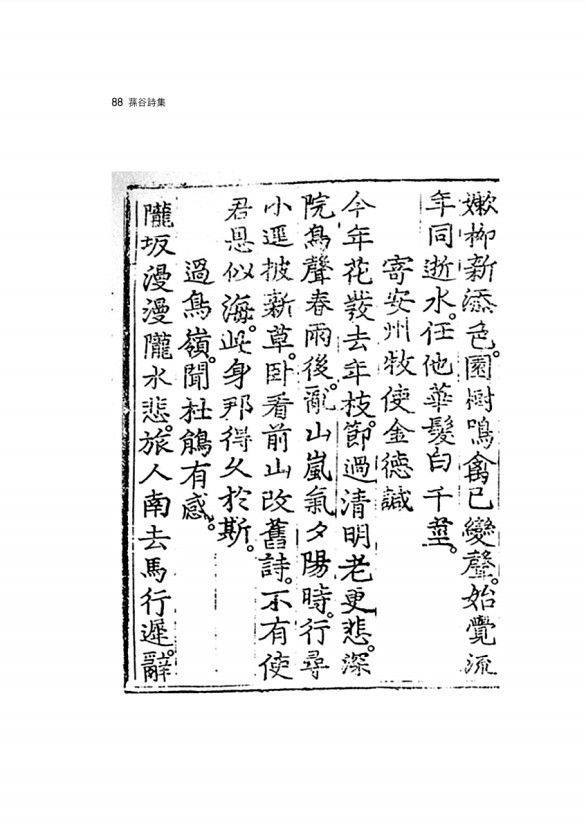 88 蓀谷詩集
嫩柳新添色。園樹鳴禽已變聲。始覺流
年同逝水。任他華髮白千莖。
寄安州牧使金德諴
今年花發去年枝。節過淸明老更悲。深
院鳥聲春雨後。亂山嵐氣夕陽時。行尋
小逕披新草。臥看前山改舊詩。不有使
君恩似海。此身那得久於斯。
過鳥嶺。聞杜鵑有感。
隴坂漫漫隴水悲。旅人南去馬行遲。辭